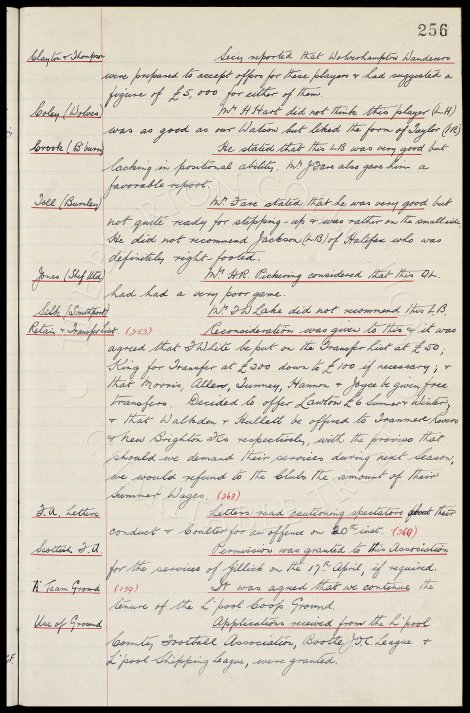 256
Clayton & Thompson Secy. reported that Wolverhampton Wanderers
were prepared to accept offers for these players & had suggested a
figure of £5,000 for either of them.
Coley (Wolves) Mr. H Hart did not think this player (L-H)
was as good as our Watson but liked the form of Taylor (IR)
Crook (B'burn) He stated that this LB was very good but
lacking in positional ability. Mr J Fare also gave him a
favorable report.
Toll (Burnley) Mr. Fare stated that he was very good but
not quite ready for stepping-up & was rather on the small side
He did not recommend Jackson (LB) of Halifax who was
definitely right-footed.
Jones (Shef Utd) Mr. HR. Pickering considered that this OL.
had had a very poor game.
Silk (Southport) Mr. T D Lake did not recommend this LB.
Retain & Transfer List. (253) Reconsideration was given to this & it was
agreed that T White be put on the Transfer List at £50;
King for Transfer at £200 down to £100 if necessary; &
that Morris, Allen, Sumney, Hannon & Joyce be given free
transfers. Decided to offer Lawton £6 Summer & Winter,
& that Walkden & Hullett be offered to Tranmere Rovers
& New Brighton FCs respectively, with the proviso that
should we demand their services during next season,
we would refund to the Clubs the amount of their
Summer Wages. (263)
F.A. Letters Letters read cautioning spectators about their
conduct & Coulter for an offence on 20th inst. (269)
Scottish F.A Permission was granted to this Association
for the services of Gillick on the 17th April, if required.
"A" Team Ground (139) It was agreed that we continue the
tenure of the L'pool Coop Ground.
Use of Ground Applications received from the L'pool
County Football Association, Bootle J.F.C. League &
L'pool Shipping League, were granted.